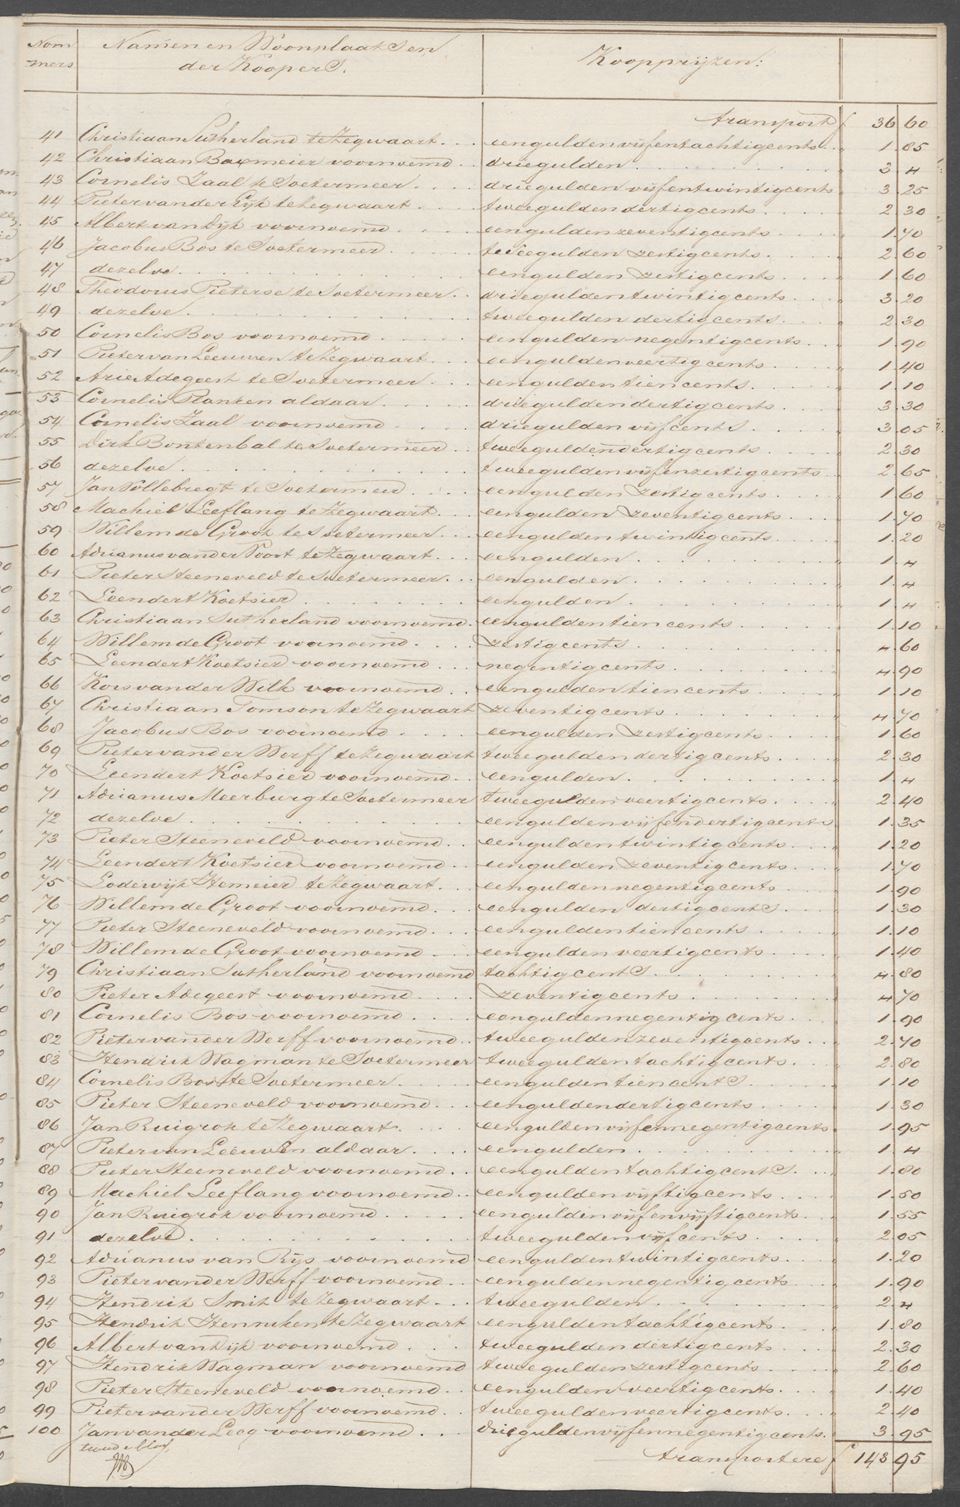 Nommers Namen en Woonplaatsen der Koopers. Koopprijzen:
transport f 36 60
41 Christiaan Sutherland te Zegwaart... eengulden vijfentachtigcents.. 1.85
42 Christiaan Baxmeier voornoemd.. driegulden.... 3 "
43 Cornelis Zaal te Soetermeer.... driegulden vijfentwintigcents 3.25
44 Pieter van der Eijk te Zegwaart.... tweegulden dertigcents.... 2.30
45 Albert van Dijk voornoemd.... eengulden zeventigcents.... 1.70
46 Jacobus Bos te Soetermeer.... tweegulden zestigcents.... 2 60
47 dezelve.... eengulden zestigcents.... 1 60
48 Theodorus Pieterse te Soetermeer.. driegulden twintigcents.... 3.20
49 dezelve.... tweegulden dertigcents.... 2.30
50 Cornelis Bos voornoemd.... eengulden negentigcents.... 1.90
51 Pieter van Leeuwen te Zegwaart... eengulden veertigcents.... 1.40
52 Arie Adegeest te Soetermeer... eengulden tiencents.... 1.10
53 Cornelis Ranken aldaar.... driegulden dertigcents.... 3.30
54 Cornelis Zaal voornoemd.... driegulden vijfcents.... 3.05
55 Dirk Bontenbal te Soetermeer... tweegulden dertigcents.... 2 30
56 dezelve.... tweegulden vijfenzestigcents... 2.65
57 Jan Tollebregt te Soetermeer.... eengulden zestigcents.... 1.60
58 Machiel Leeflang te Zegwaart... eengulden zeventigcents.... 1.70
59 Willem de Groot te Soetermeer... eengulden twintigcents.... 1.20
60 Adrianus van der Poort te Zegwaart.. eengulden.... 1 "
61 Pieter Steeneveld te Soetermeer... eengulden.... 1 "
62 Leendert Koetsier.... eengulden.... 1 "
63 Christiaan Sutherland voornoemd. eengulden tiencents.... 1.10
64 Willem de Groot voornoemd.... zestigcents.... " 60
65 Leendert Koetsier voornoemd... negentigcents.... " 90
66 Kors van der Wilk voornoemd.. eengulden tiencents.... 1.10
67 Christiaan Tomson te Zegwaart zeventigcents.... " 70
68 Jacobus Bos voornoemd.... eengulden zestigcents.... 1.60
69 Pieter van der Werff te Zegwaart tweegulden dertigcents.... 2.30
70 Leendert Koetsier voornoemd... eengulden.... 1 "
71 Adrianus Meerburg te Soetermeer tweegulden veertigcents.... 2.40
72 dezelve.... eengulden vijfendertigcents 1.35
73 Pieter Steeneveld voornoemd... eengulden twintigcents.... 1.20
74 Leendert Koetsier voornoemd... eengulden zeventigcents.... 1.70
75 Lodewijk Hemeier te Zegwaart... eengulden negentigcents.... 1.90
76 Willem de Groot voornoemd.... eengulden dertigcents.... 1.30
77 Pieter Steeneveld voornoemd... eengulden tiencents.... 1.10
78 Willem de Groot voornoemd.... eengulden veertigcents.... 1.40
79 Christiaan Sutherland voornoemd tachtigcents.... ".80
80 Pieter Adegeest voornoemd.... zeventigcents.... ".70
81 Cornelis Bos voornoemd.... eengulden negentigcents.... 1.90
82 Pieter van der Werff voornoemd... tweegulden zeventigcents.... 2.70
83 Hendrik Wagman te Soetermeer tweegulden tachtigcents.... 2.80
84 Cornelis Bos te Soetermeer.... eengulden tiencents.... 1.10
85 Pieter Steeneveld voornoemd... eengulden dertigcents.... 1.30
86 Jan Ruigrok te Zegwaart.... eengulden vijfennegentigcents. 1.95
87 Pieter van Leeuwen aldaar.... eengulden.... 1 "
88 Pieter Steeneveld voornoemd... eengulden tachtigcents.... 1.80
89 Machiel Leeflang voornoemd.. eengulden vijftigcents.... 1.50
90 Jan Ruigrok voornoemd.... eengulden vijfenvijftigcents... 1.55
91 dezelve.... tweegulden vijfcents.... 2 05
92 Adrianus van Rijs voornoemd... eengulden twintigcents.... 1.20
93 Pieter van der Werff voornoemd.. eengulden negentigcents.... 1.90
94 Hendrik Smit te Zegwaart... tweegulden.... 2 "
95 Hendrik Henneken te Zegwaart eengulden tachtigcents.... 1.80
96 Albert van Dijk voornoemd.... tweegulden dertigcents.... 2.30
97 Hendrik Wagman voornoemd tweegulden zestigcents.... 2 60
98 Pieter Steeneveld voornoemd... eengulden veertigcents.... 1.40
99 Pieter van der Werff voornoemd.. tweegulden veertigcents.... 2.40
100 Jan van der Lecq voornoemd.. driegulden vijfennegentigcents. 3.95
transportere f 143 95